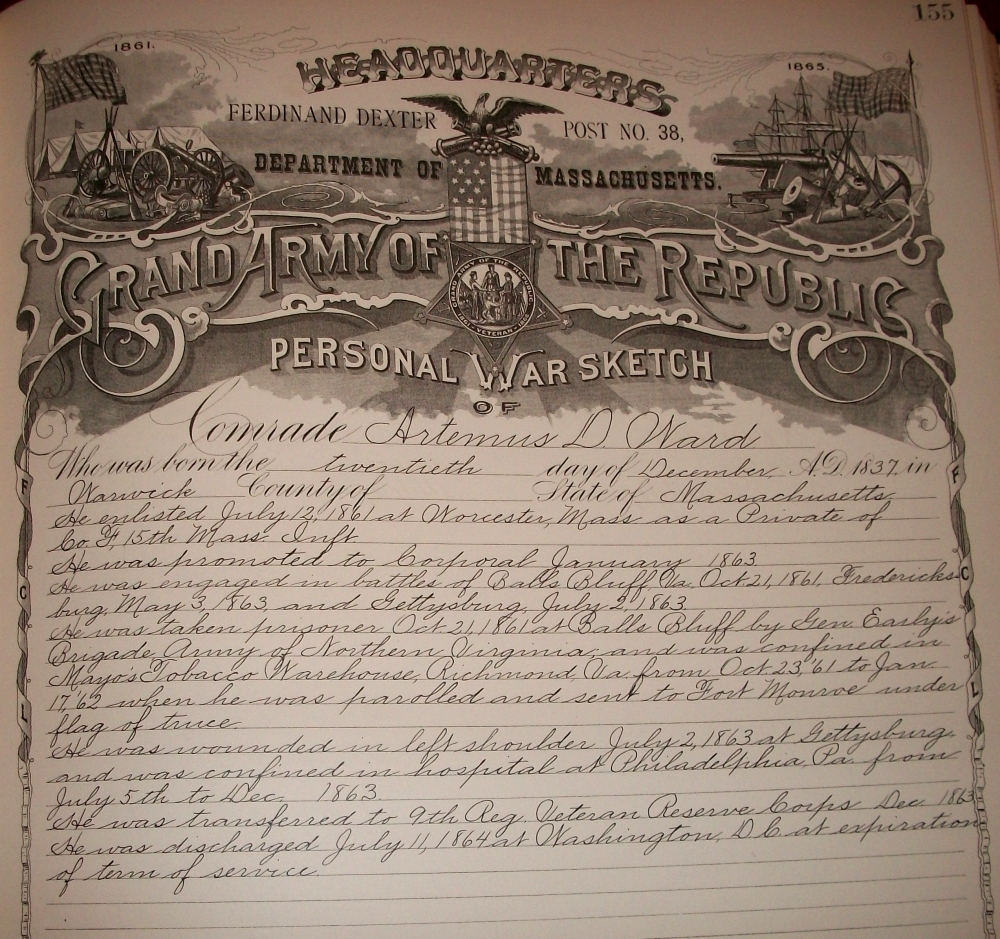 155
1861.
1865.
HEADQUARTERS
FERDINAND DEXTER POST NO. 38,
DEPARTMENT OF MASSACHUSETTS.
GRAND ARMY OF THE REPUBLIC
GRAND ARMY OF THE REPUBLIC
VETERAN
PERSONAL WAR SKETCH
OF
Comrade Artemus D. Ward
Who was born the twentieth day of December, A.D. 1837, in
Warwick County of State of Massachusetts
He enlisted July 12, 1861 at Worcester, Mass as a Private of
Co. F, 15th Mass. Inft
He was promoted to Corporal January 1863
He was engaged in battles of Balls Bluff, Va. Oct 21, 1861, Fredericks-
burg, May 3, 1863, and Gettysburg, July 2, 1863.
He was taken prisoner Oct. 21, 1861 at Balls Bluff by Gen. Early's
Brigade, Army of Northern Virginia, and was confined in
Mayo's Tobacco Warehouse, Richmond, Va. from Oct 23, '61 to Jan.
17, '62 when he was parolled and sent to Fort Monroe under
flag of truce.
He was wounded in left shoulder July 2, 1863 at Gettysburg
and was confined in hospital at Philadelphia, Pa. from
July 5th to Dec. 1863.
He was transferred to 9th Reg. Veteran Reserve Corps Dec. 1863
He was discharged July 11, 1864 at Washington, D.C. at expiration
of term of service.
F
C
L
F
C
L